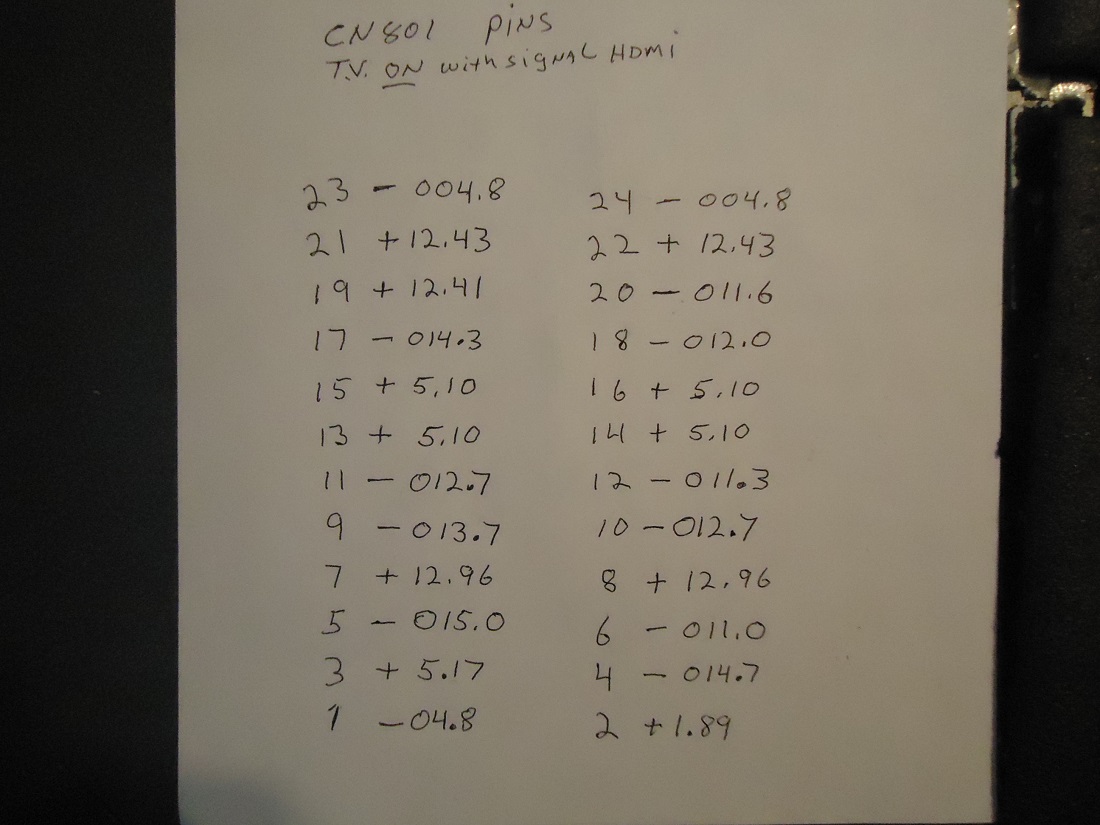 CN801 PiNS
T.V. ON with sigNAL HDMi
23 - 004.8 24 - 004.8
21 + 12.43 22 + 12.43
19 + 12.41 20 - 011.6
17 - 014.3 18 - 012.0
15 + 5.10 16 + 5.10
13 + 5.10 14 + 5.10
11 - 012.7 12 - 011.3
9 - 013.7 10 - 012.7
7 + 12.96 8 + 12.96
5 - 015.0 6 - 011.0
3 + 5.17 4 - 014.7
1 - 04.8 2 + 1.89